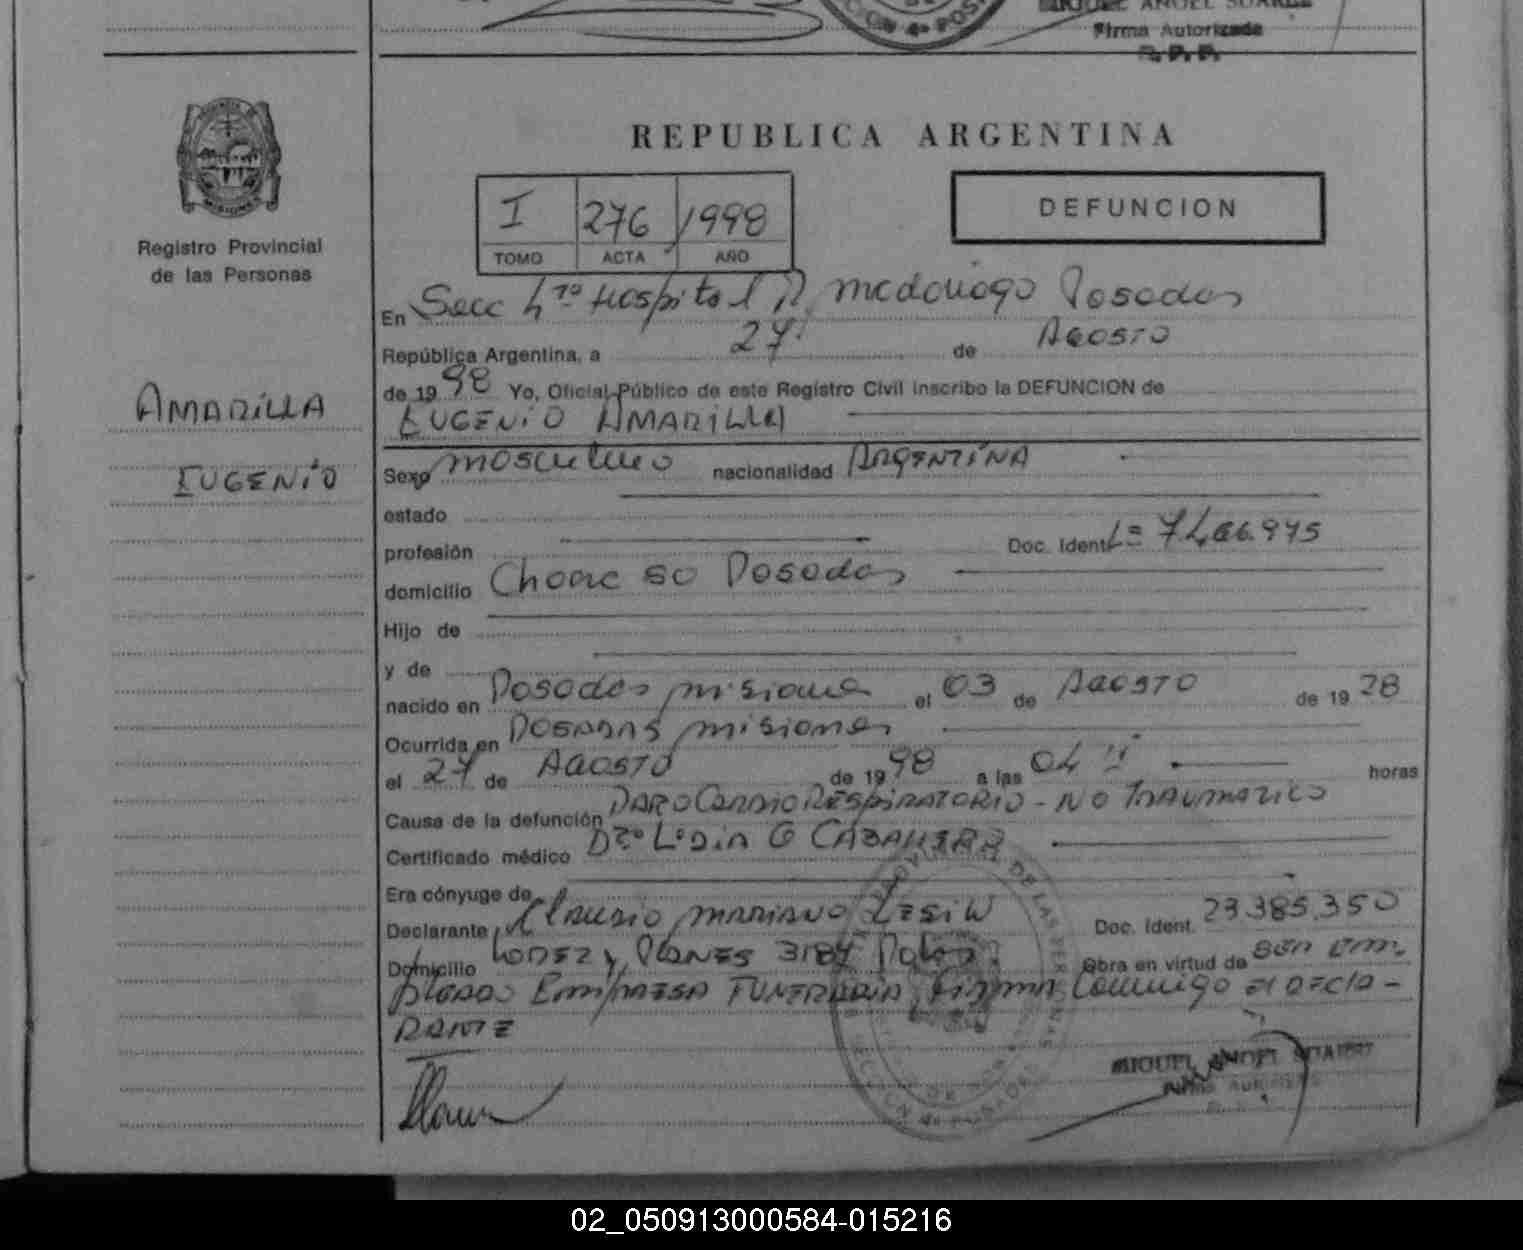 MIGUEL ANGEL SUAREZ
Firma Autorizada
R. P. P.
REPUBLICA ARGENTINA
I 276 1998
TOMO ACTA AÑO
DEFUNCION
Registro Provincial
de las Personas
AMARILLA
EUGENIO
En Secc 4ta Hospital R. Madariaga Posadas
República Argentina, a 27 de AGOSTO
de 19 98 Yo, Oficial Público de este Registro Civil inscribo la DEFUNCION de
EUGENIO AMARILLA
Sexo masculino nacionalidad ARGENTINA
estado
profesión Doc. Ident. L=
domicilio Posadas
Hijo de
y de
nacido en Posadas misiones el 03 de AGOSTO de 19 28
Ocurrida en POSADAS misiones
el 27 de AGOSTO de 19 98 a las 04 horas
Causa de la defunción PARO CARDIO RESPIRATORIO - NO TRAUMATICO
Certificado médico Dra Lidia G CABALLERO
Era cónyuge de
Declarante CLAUDIO MARIANO LESIW Doc. Ident. 23.385.350
Domicilio LOPEZ y PLANES 3184 Obra en virtud de ser em-
pleado EMPRESA FUNERARIA, Firma Conmigo el decla-
RANTE
MIGUEL ANGEL SUAREZ
02_050913000584-015216